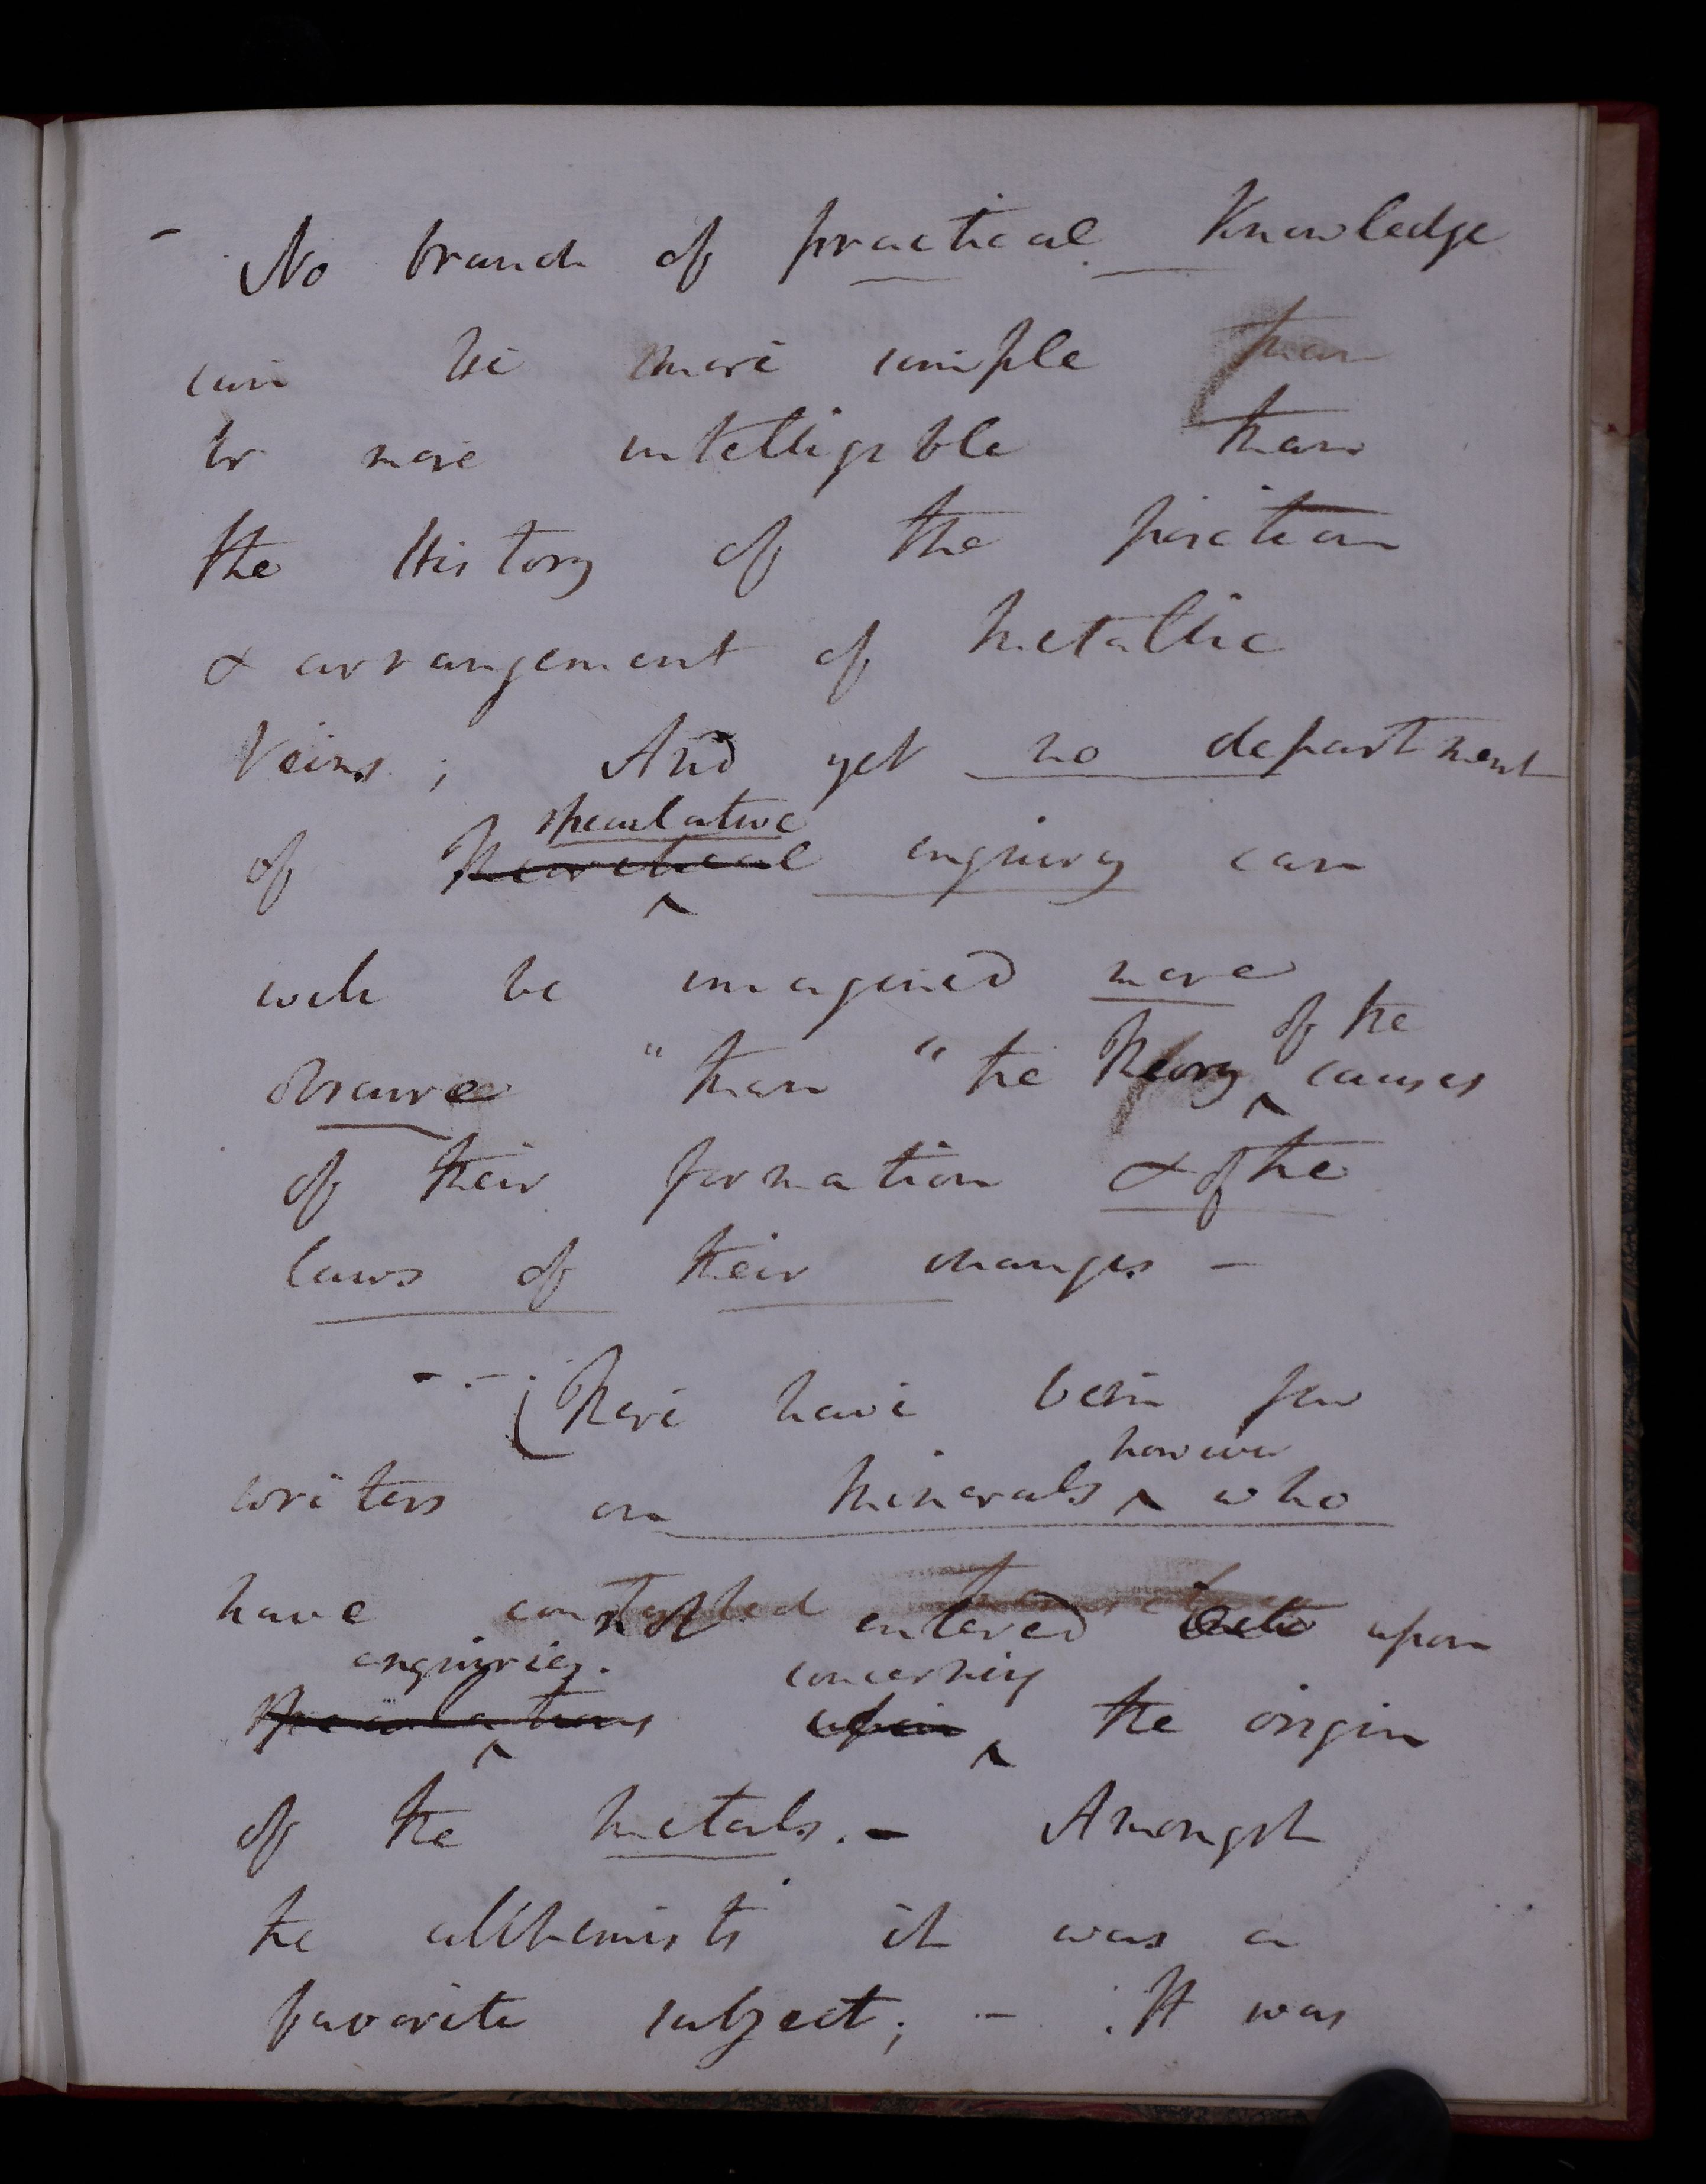 - No branch of practical Knowledge
can be more simple than
or more intelligible than
the History of the position
& arrangement of Metallic
Veins; And yet no department
speculative
of Theoretical ^ enquiry can
well be imagined more
of the
obscure "than "the Theory ^ causes
of their formation & of the
laws of their changes -
- - - (There have been few
however
writers on Minerals ^ who
have not entered into upon
enquiries. concerning
Speculations ^ upon ^ the origin
of the Metals. - Amongst
the alchemists it was a
favorite subject; - It was